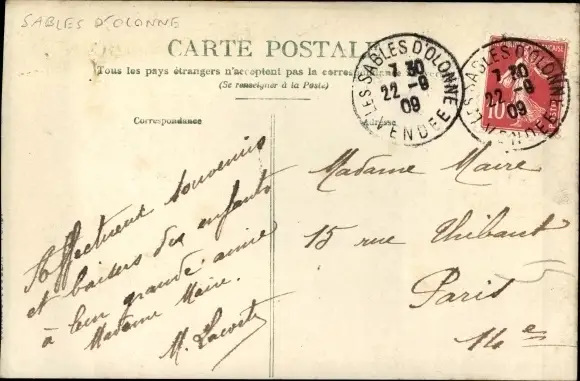 SABLES D'OLONNE
CARTE POSTALE
Tous les pays étrangers n'acceptent pas la correspondance
(Se renseigner à la Poste)
LES SABLES D'OLONNE
7 30
22 -9
09
VENDEE
LES SABLES D'OLONNE
7 30
22 -9
09
VENDEE
10
POSTES
Correspondance
Adresse
Affectueux souvenirs
et baisers des enfants
à leur grande amie
Madame Maire.
M. Lacoste
Madame Maire
15 rue Thibaut
Paris
14e